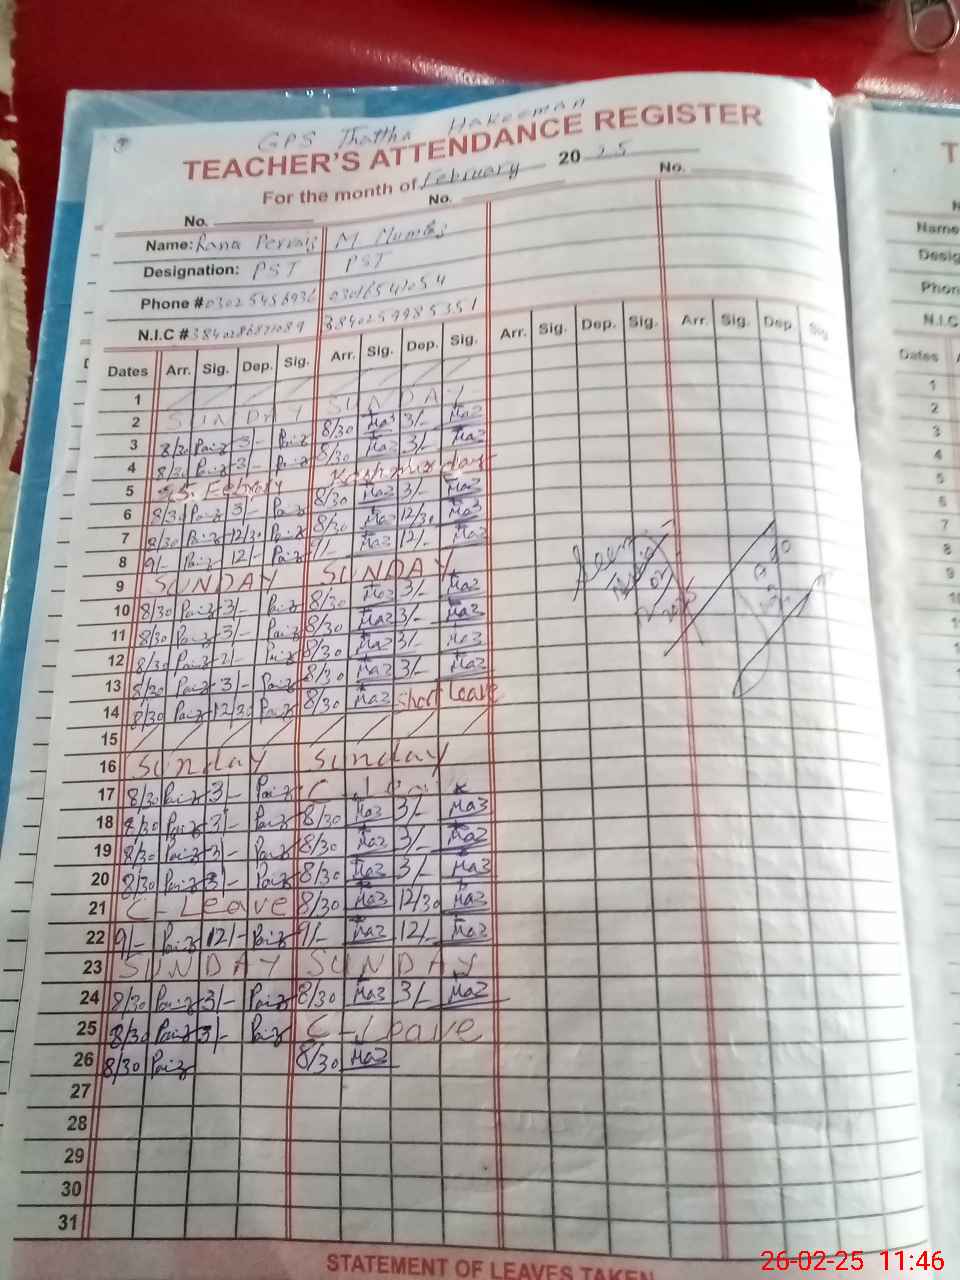 GPS Thattha Hakeeman
TEACHER'S ATTENDANCE REGISTER
For the month of February 2025
No. No. No.
Name: Rana Pervaiz M Mumtaz
Designation: PST PST
Phone # 03025456936 03016541054
N.I.C # 3840286871089 3840259985351
Dates Arr. Sig. Dep. Sig. Arr. Sig. Dep. Sig. Arr. Sig. Dep. Sig. Arr. Sig. Dep. Sig
1
2 SUNDAY SUNDAY
3 8/30 Paiz 3/- Paiz 8/30 Maz 3/- Maz
4 8/30 Paiz 3/- Paiz 8/30 Maz 3/- Maz
5 Kashmir day
6 8/30 Paiz 3/- Paiz 8/30 Maz 3/- Maz
7 8/30 Paiz 12/30 Paiz 8/30 Maz 12/30 Maz
8 9/- Paiz 12/- Paiz 9/- Maz 12/- Maz
9 SUNDAY SUNDAY
10 8/30 Paiz 3/- Paiz 8/30 Maz 3/- Maz
11 8/30 Paiz 3/- Paiz 8/30 Maz 3/- Maz
12 8/30 Paiz 3/- Paiz 8/30 Maz 3/- Maz
13 8/30 Paiz 3/- Paiz 8/30 Maz 3/- Maz
14 8/30 Paiz 12/30 Paiz 8/30 Maz Short Leave
15
16 Sunday Sunday
17 8/30 Paiz 3/- Paiz
18 8/30 Paiz 3/- Paiz 8/30 Maz 3/- Maz
19 8/30 Paiz 3/- Paiz 8/30 Maz 3/- Maz
20 8/30 Paiz 3/- Paiz 8/30 Maz 3/- Maz
21 C-Leave 8/30 Maz 12/30 Maz
22 9/- Paiz 12/- Paiz 9/- Maz 12/- Maz
23 SUNDAY SUNDAY
24 8/30 Paiz 3/- Paiz 8/30 Maz 3/- Maz
25 8/30 Paiz 3/- Paiz C-Leave
26 8/30 Paiz 8/30 Maz
27
28
29
30
31
Seen
STATEMENT OF LEAVES TAKEN
T
Name
Desig
Phon
N.I.C
Dates
1
2
3
4
5
6
7
8
9
26-02-25 11:46